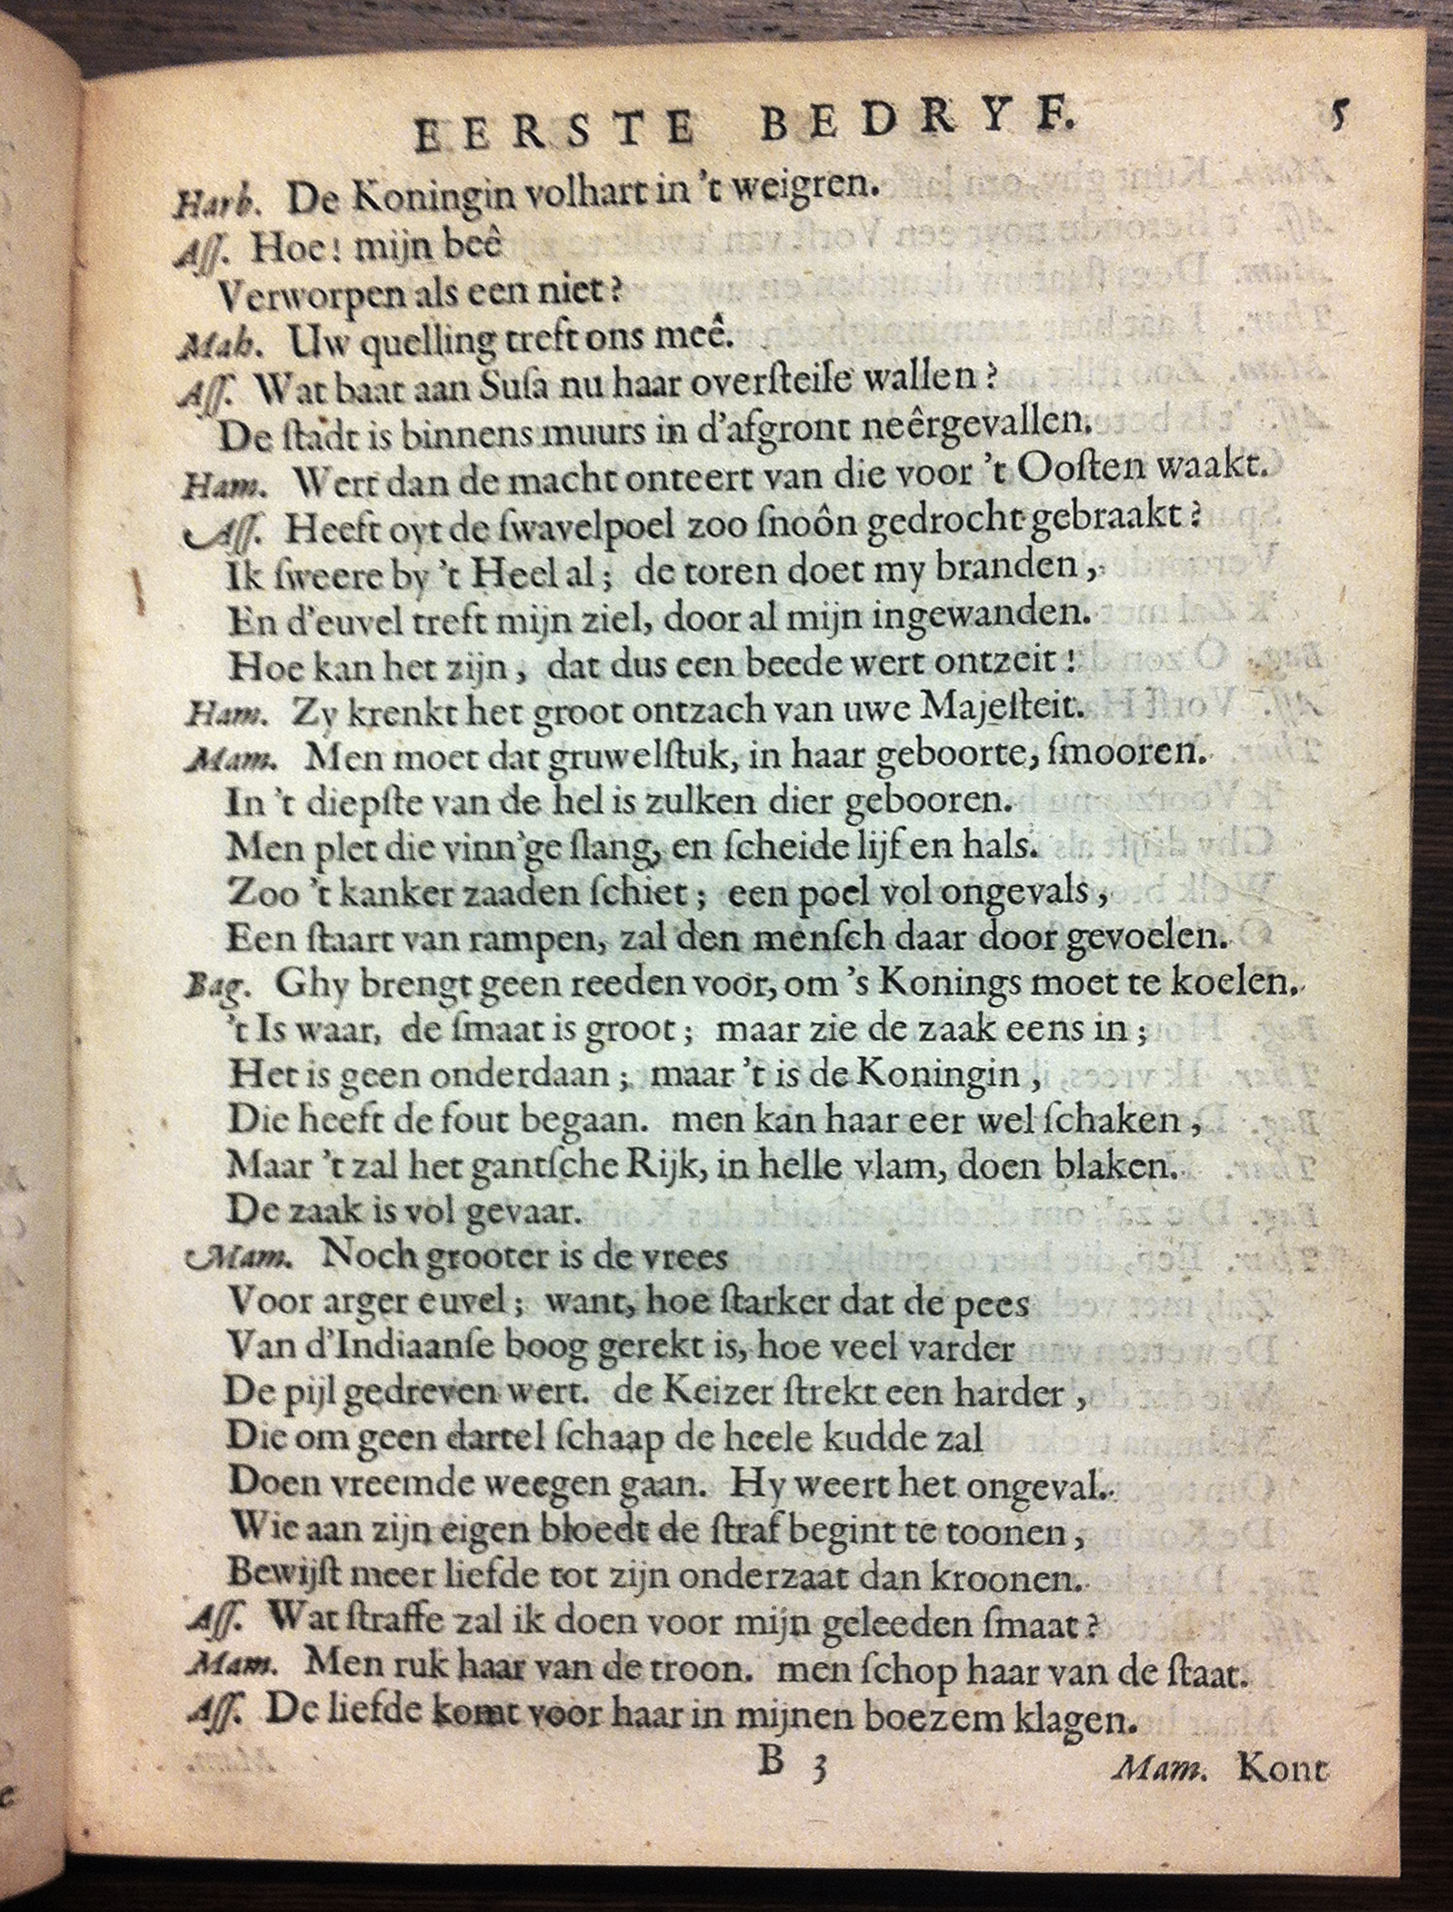 EERSTE BEDRYF. 5
Harb. De Koningin volhart in 't weigren.
Aſſ. Hoe! mijn beê
Verworpen als een niet?
Mah. Uw quelling treft ons meê.
Aſſ. Wat baat aan Suſa nu haar overſteile wallen?
De ſtadt is binnens muurs in d'afgront neêrgevallen.
Ham. Wert dan de macht onteert van die voor 't Ooſten waakt.
Aſſ. Heeft oyt de ſwavelpoel zoo ſnoôn gedrocht gebraakt?
Ik ſweere by 't Heel al; de toren doet my branden,
En d'euvel treft mijn ziel, door al mijn ingewanden.
Hoe kan het zijn, dat dus een beede wert ontzeit!
Ham. Zy krenkt het groot ontzach van uwe Majeſteit.
Mam. Men moet dat gruwelſtuk, in haar geboorte, ſmooren.
In 't diepſte van de hel is zulken dier gebooren.
Men plet die vinn'ge ſlang, en ſcheide lijf en hals.
Zoo 't kanker zaaden ſchiet; een poel vol ongevals,
Een ſtaart van rampen, zal den menſch daar door gevoelen.
Bag. Ghy brengt geen reeden voor, om 's Konings moet te koelen.
't Is waar, de ſmaat is groot; maar zie de zaak eens in;
Het is geen onderdaan; maar 't is de Koningin,
Die heeft de fout begaan. men kan haar eer wel ſchaken,
Maar 't zal het gantſche Rijk, in helle vlam, doen blaken.
De zaak is vol gevaar.
Mam. Noch grooter is de vrees
Voor arger euvel; want, hoe ſtarker dat de pees
Van d'Indiaanſe boog gerekt is, hoe veel varder
De pijl gedreven wert. de Keizer ſtrekt een harder,
Die om geen dartel ſchaap de heele kudde zal
Doen vreemde weegen gaan. Hy weert het ongeval.
Wie aan zijn eigen bloedt de ſtraf begint te toonen,
Bewijſt meer liefde tot zijn onderzaat dan kroonen.
Aſſ. Wat ſtraffe zal ik doen voor mijn geleeden ſmaat?
Mam. Men ruk haar van de troon. men ſchop haar van de ſtaat.
Aſſ. De liefde komt voor haar in mijnen boezem klagen.
B 3 Mam. Kont